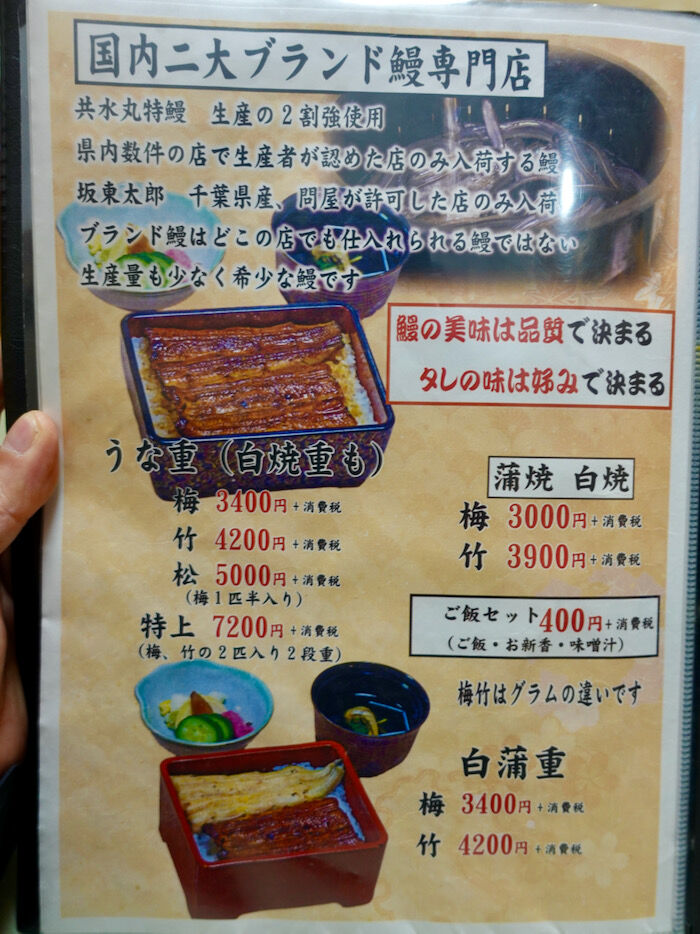 国内二大ブランド鰻専門店
共水丸特鰻　生産の２割強使用
県内数件の店で生産者が認めた店のみ入荷する鰻
坂東太郎　千葉県産、問屋が許可した店のみ入荷
ブランド鰻はどこの店でも仕入れられる鰻ではない
生産量も少なく希少な鰻です
鰻の美味は品質で決まる
タレの味は好みで決まる
うな重（白焼重も）
梅 3400円＋消費税
竹 4200円＋消費税
松 5000円＋消費税
（梅１匹半入り）
特上 7200円＋消費税
（梅、竹の２匹入り２段重）
蒲焼 白焼
梅 3000円＋消費税
竹 3900円＋消費税
ご飯セット400円＋消費税
（ご飯・お新香・味噌汁）
梅竹はグラムの違いです
白蒲重
梅 3400円＋消費税
竹 4200円＋消費税